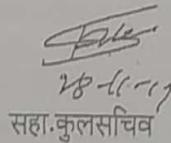 28-11-19
सहा.कुलसचिव